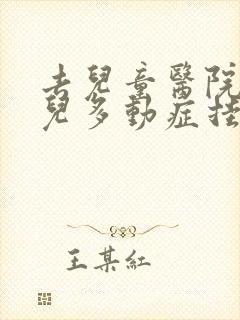 去兒童醫院
兒多動症挂
王某紅